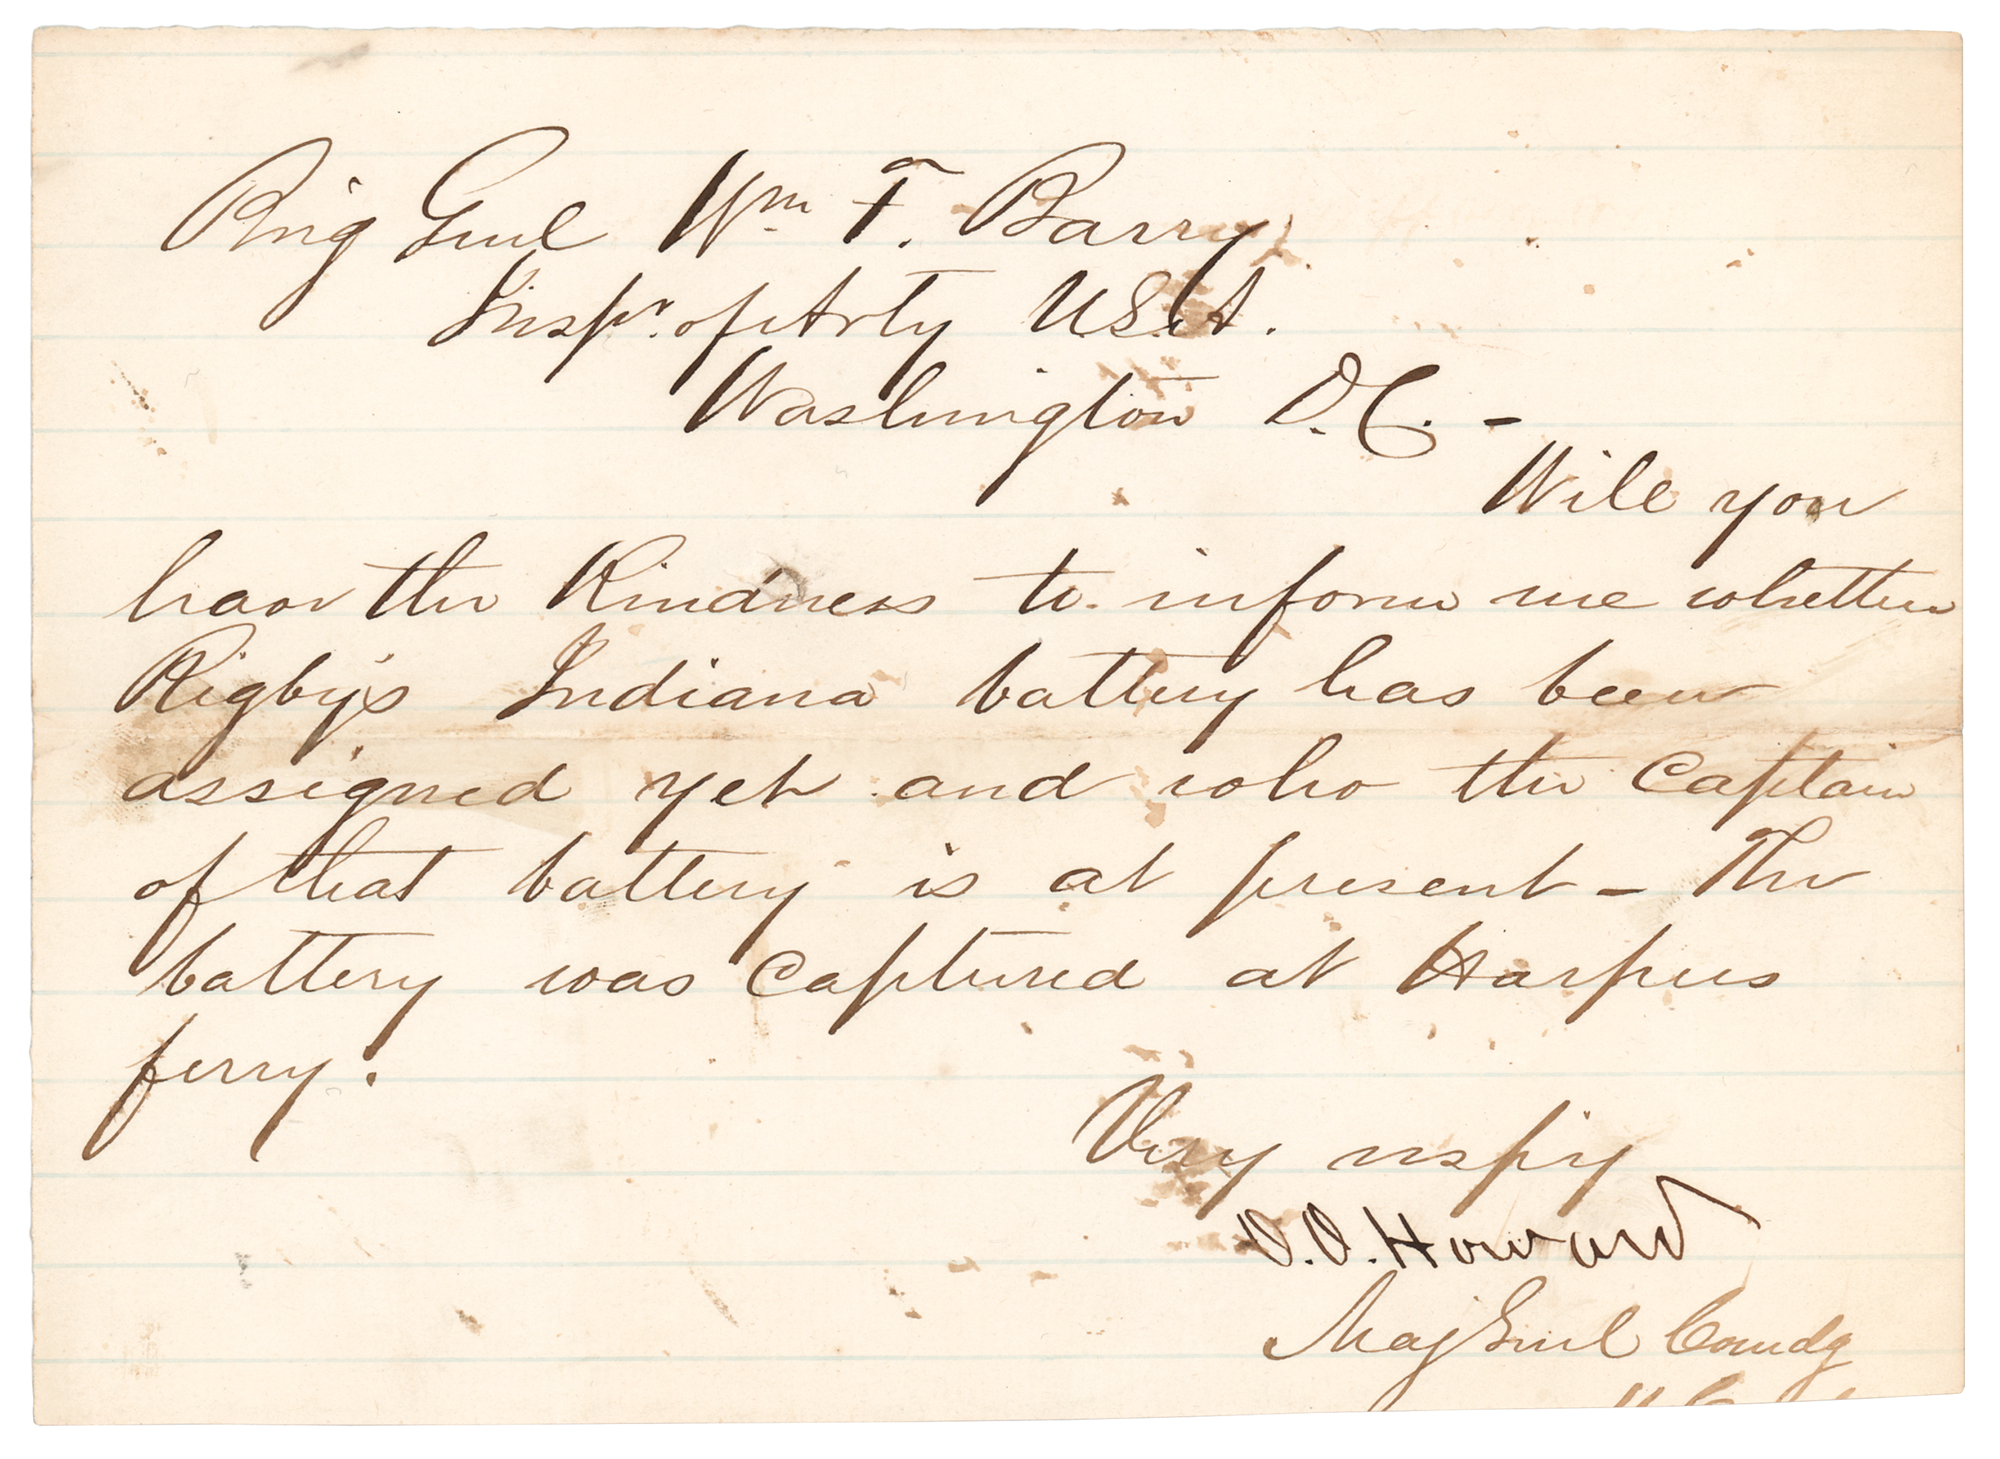 Brig Genl Wm F. Barry
Inspr. of Arty U.S.A.
Washington D.C. -
Will you
have the Kindness to inform me whether
Rigby's Indiana battery has been
assigned yet and who the Captain
of that battery is at present - The
battery was Captured at Harpers
ferry.
Very respy
O.O. Howard
Maj Genl Comdg